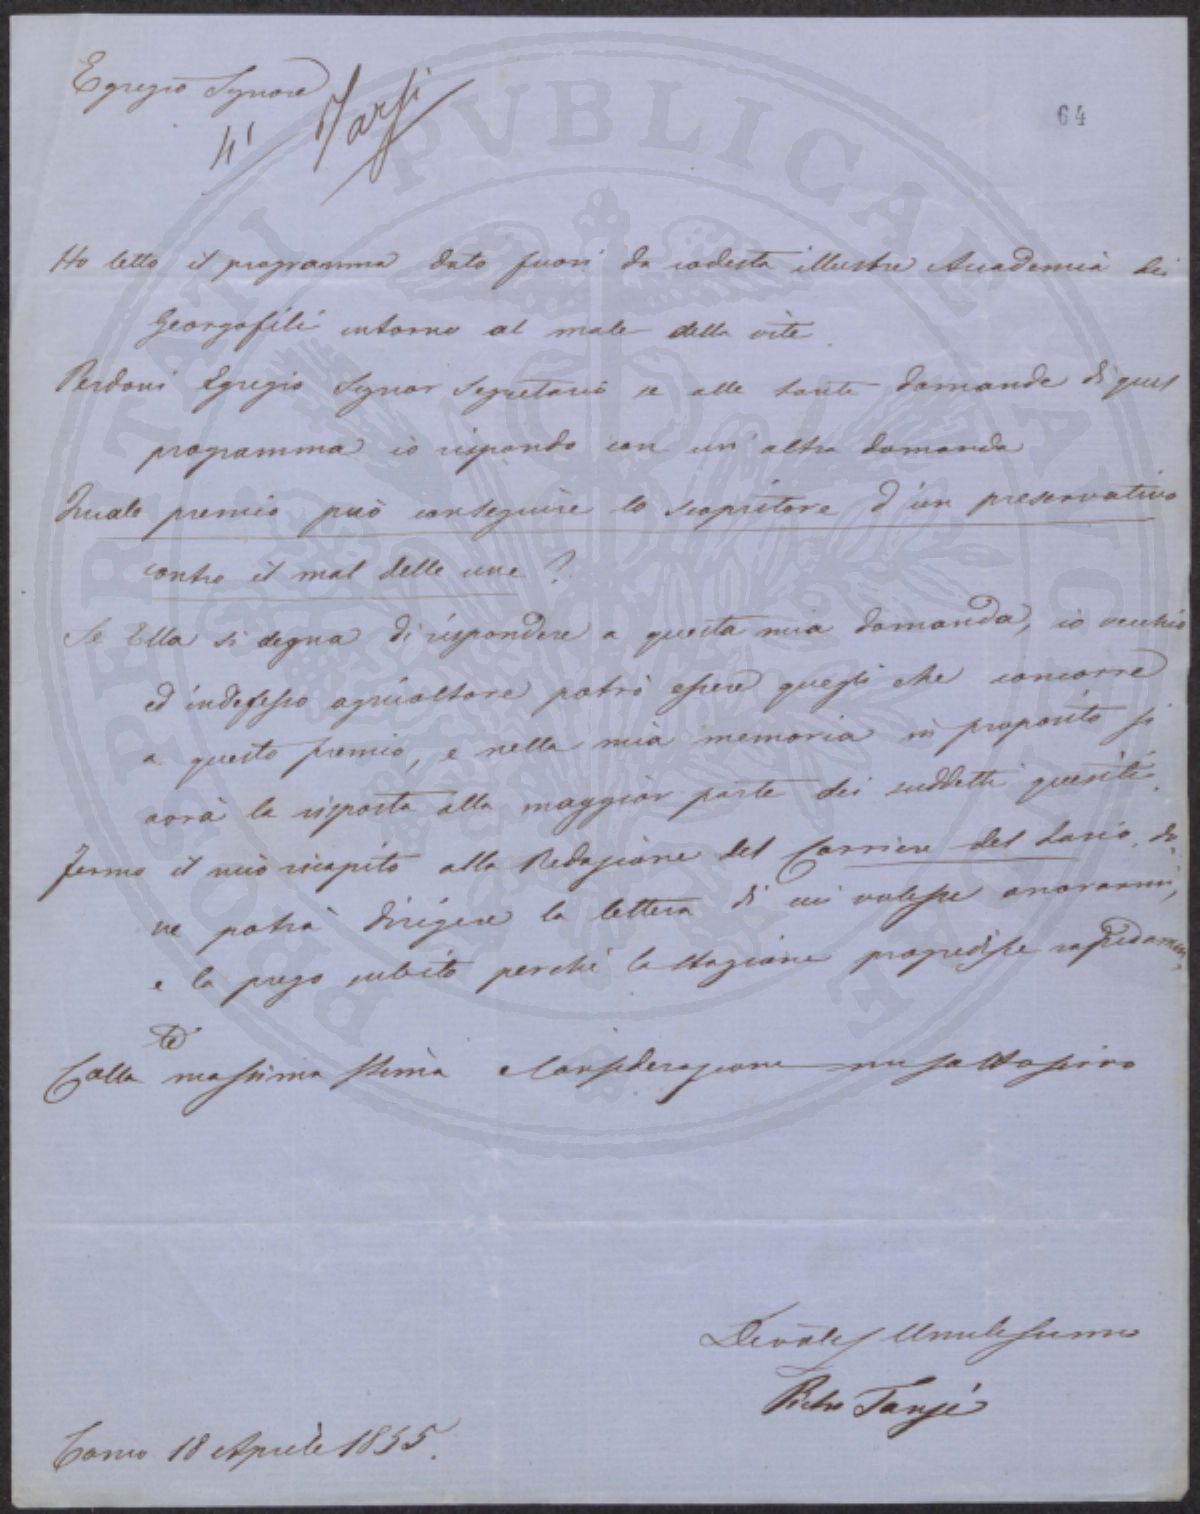 Egregio Signore
64
Ho letto il programma dato fuori da codesta illustre Accademia dei
Georgofili intorno al male della vite.
Perdoni Egregio Signor Segretario se alle tante domande di quel
programma io rispondo con un'altra domanda
Quale premio può conseguire lo scopritore d'un preservativo
contro il mal delle uve?
Se Ella si degna di rispondere a questa mia domanda, io vecchio
ed indefesso agricoltore potrò essere quegli che concorre
a questo premio, e nella mia memoria in proposito si
avrà la risposta alla maggior parte dei suddetti quesiti.
Fermo il mio ricapito alla Redazione del Corriere del Lario, do,
ve potrà dirigere la lettera di cui volesse onorarmi,
e la prego subito perchè la stagione progredisce rapidamen,
te
Colla massima stima e considerazione mi sottoscrivo
Umilissimo
Pietro
Como 18 Aprile 1855.
PROSPERITATI PVBLICAE AVGENDAE